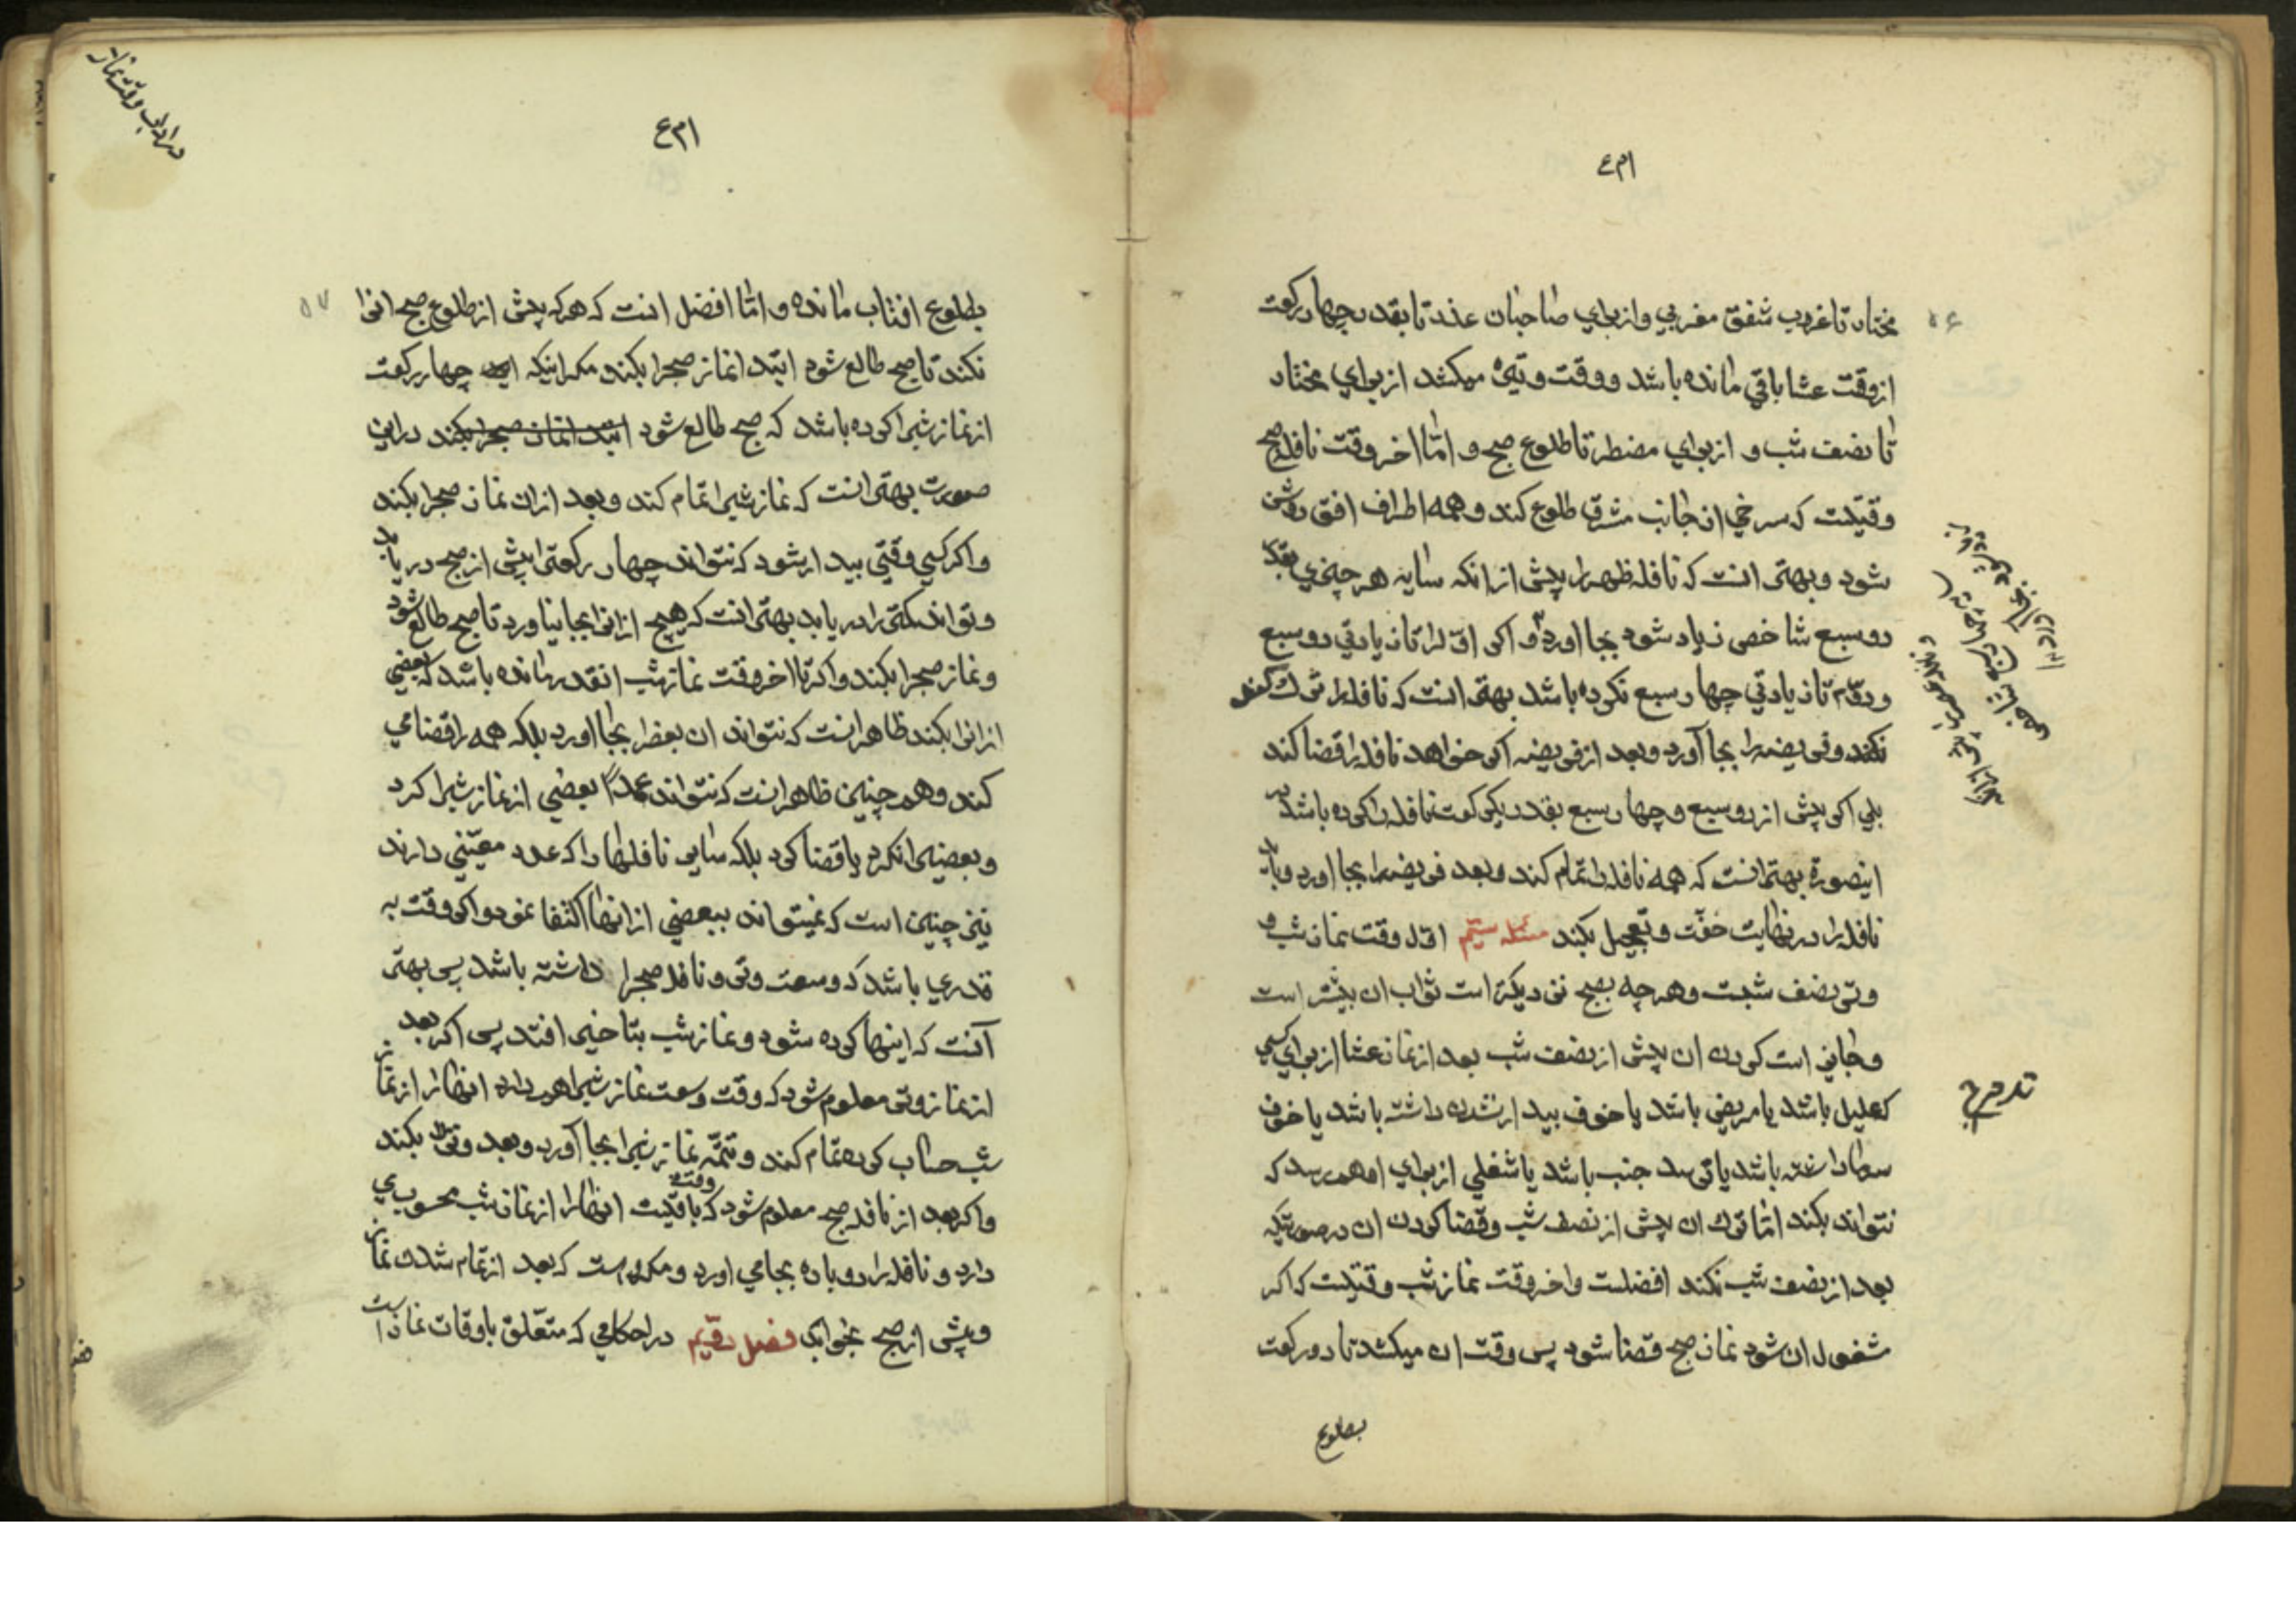 ۵۶
مختار تا غروب شفق مغربي و از براي صاحبان عذر تا بقدر چهار ركعت
از وقت عشا باقي مانده باشد و وقت وتيره ميكشد از براي مختار
تا نصف شب و از براي مضطر تا طلوع صبح و امّا اخر وقت نافله صبح
وقتيست كه سرخي از جانب مشرق طلوع كند و همه اطراف افق روشن
شود و بهتر انست كه نافله ظهر را پيش از انكه سايه هر چيزي بقدر
دو سبع شاخص زياد شود بجا اورد و اكر اوّل را تا زيادتي دو سبع
و دوّم تا زيادتي چهار سبع نكرده باشد بهتر انست كه نافله را ترك كند
نكند و فريضه را بجا آورد و بعد از فريضه اكر خواهد نافله را قضا كند
بلي اكر پيش از دو سبع و چهار سبع بقدر يكركعت نافله را كرده باشد در
اينصورة بهتر انست كه همه نافله را تمام كند و بعد فريضه را بجا اورد و بايد
نافله را در نهايت خفّت و تعجيل بكند مسئله ستيم اوّل وقت نماز شب و
وتر نصف شبست و هر چه بصبح نزديكتر است ثواب ان بيشتر است
و جايز است كردن ان پيش از نصف شب بعد از نماز عشا از براي كسي
كه عليل باشد يا مريض باشد يا خوف بيدار نشدن داشته باشد يا خوف
سرما داشته باشد يا ترسد جنب باشد يا شغلي از براي او هم رسد كه
نتواند بكند امّا ترك ان پيش از نصف شب و قضا كردن ان در صورتيكه
بعد از نصف شب نكند افضلست و اخر وقت نماز شب وقتيست كه اكر
مشغول ان شود نماز صبح قضا شود پس وقت ان ميكشد تا دو ركعت
بطلوع
در اداب وقت نماز
۵۷
بطلوع افتاب مانده و امّا افضل انست كه هر كه پيش از طلوع صبح انرا
نكند تا صبح طالع شود ابتدا نماز صبح را بكند مكر اينكه چهار ركعت
از نماز شب را كرده باشد كه صبح طالع شود ابتدا نماز صبح را بكند در اين
صورت بهتر انست كه نماز شب را تمام كند و بعد از ان نماز صبح را بكند
و اكر كسي وقتي بيدار شود كه نتواند چهار ركعت را پيش از صبح دريابد
و تواند كمتر را دريابد بهتر انست كه هيچ از انرا بجا نياورد تا صبح طالع شود
و نماز صبح را بكند و اكر تا اخر وقت نماز شب انقدر مانده باشد كه بعضي
از انرا بكند ظاهر انست كه نتواند ان بعض را بجا اورد بلكه همه را قضا مي
كند و هم چنين ظاهر انست كه نتواند عمداً بعضي از نماز شب را كرد
و بعضي را نكرد يا قضا كرد بلكه ساير نافلها را كه عدد معيّني دارند
نيز چنين است كه نميتواند ببعضي از انها اكتفا نمود و اكر وقت به
قدري باشد كه وسعت وتر و نافله صبح را داشته باشد پس بهتر
آنست كه اينها كرده شود و نماز شب بتاخير افتد پس اكر بعد
از نماز وتر معلوم شود كه وقت وسعت نماز شب را هم دارد انها را از نماز
شب حساب كرده تمام كند و تتمّه نماز شب را بجا آورد و بعد وتر بكند
و اكر بعد از نافله صبح معلوم شود كه وقت باقيست انها را از نماز شب محسوب مي
دارد و نافله را دوباره بجا مي اورد و مكروه است كه بعد از تمام شدن نماز
و پيش از صبح بخوابد فصل دويّم در احكامي كه متعّلق باوقات نماز است